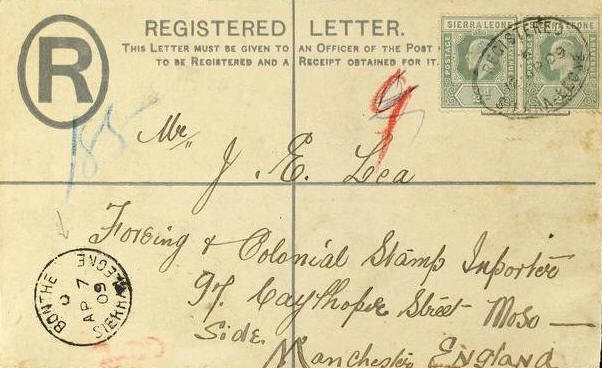 REGISTERED LETTER.
THIS LETTER MUST BE GIVEN TO AN OFFICER OF THE POST
TO BE REGISTERED AND A RECEIPT OBTAINED FOR IT.
R
SIERRA LEONE SIERRA LEONE
POSTAGE
REGISTERED
09
9
Mr
J. E. Lea
Foreing & Colonial Stamp Inporter
97. Caythorpe Street Moso—
Side.
Manchester England
BONTHE
C
AP 7
09
SIERRA LEONE